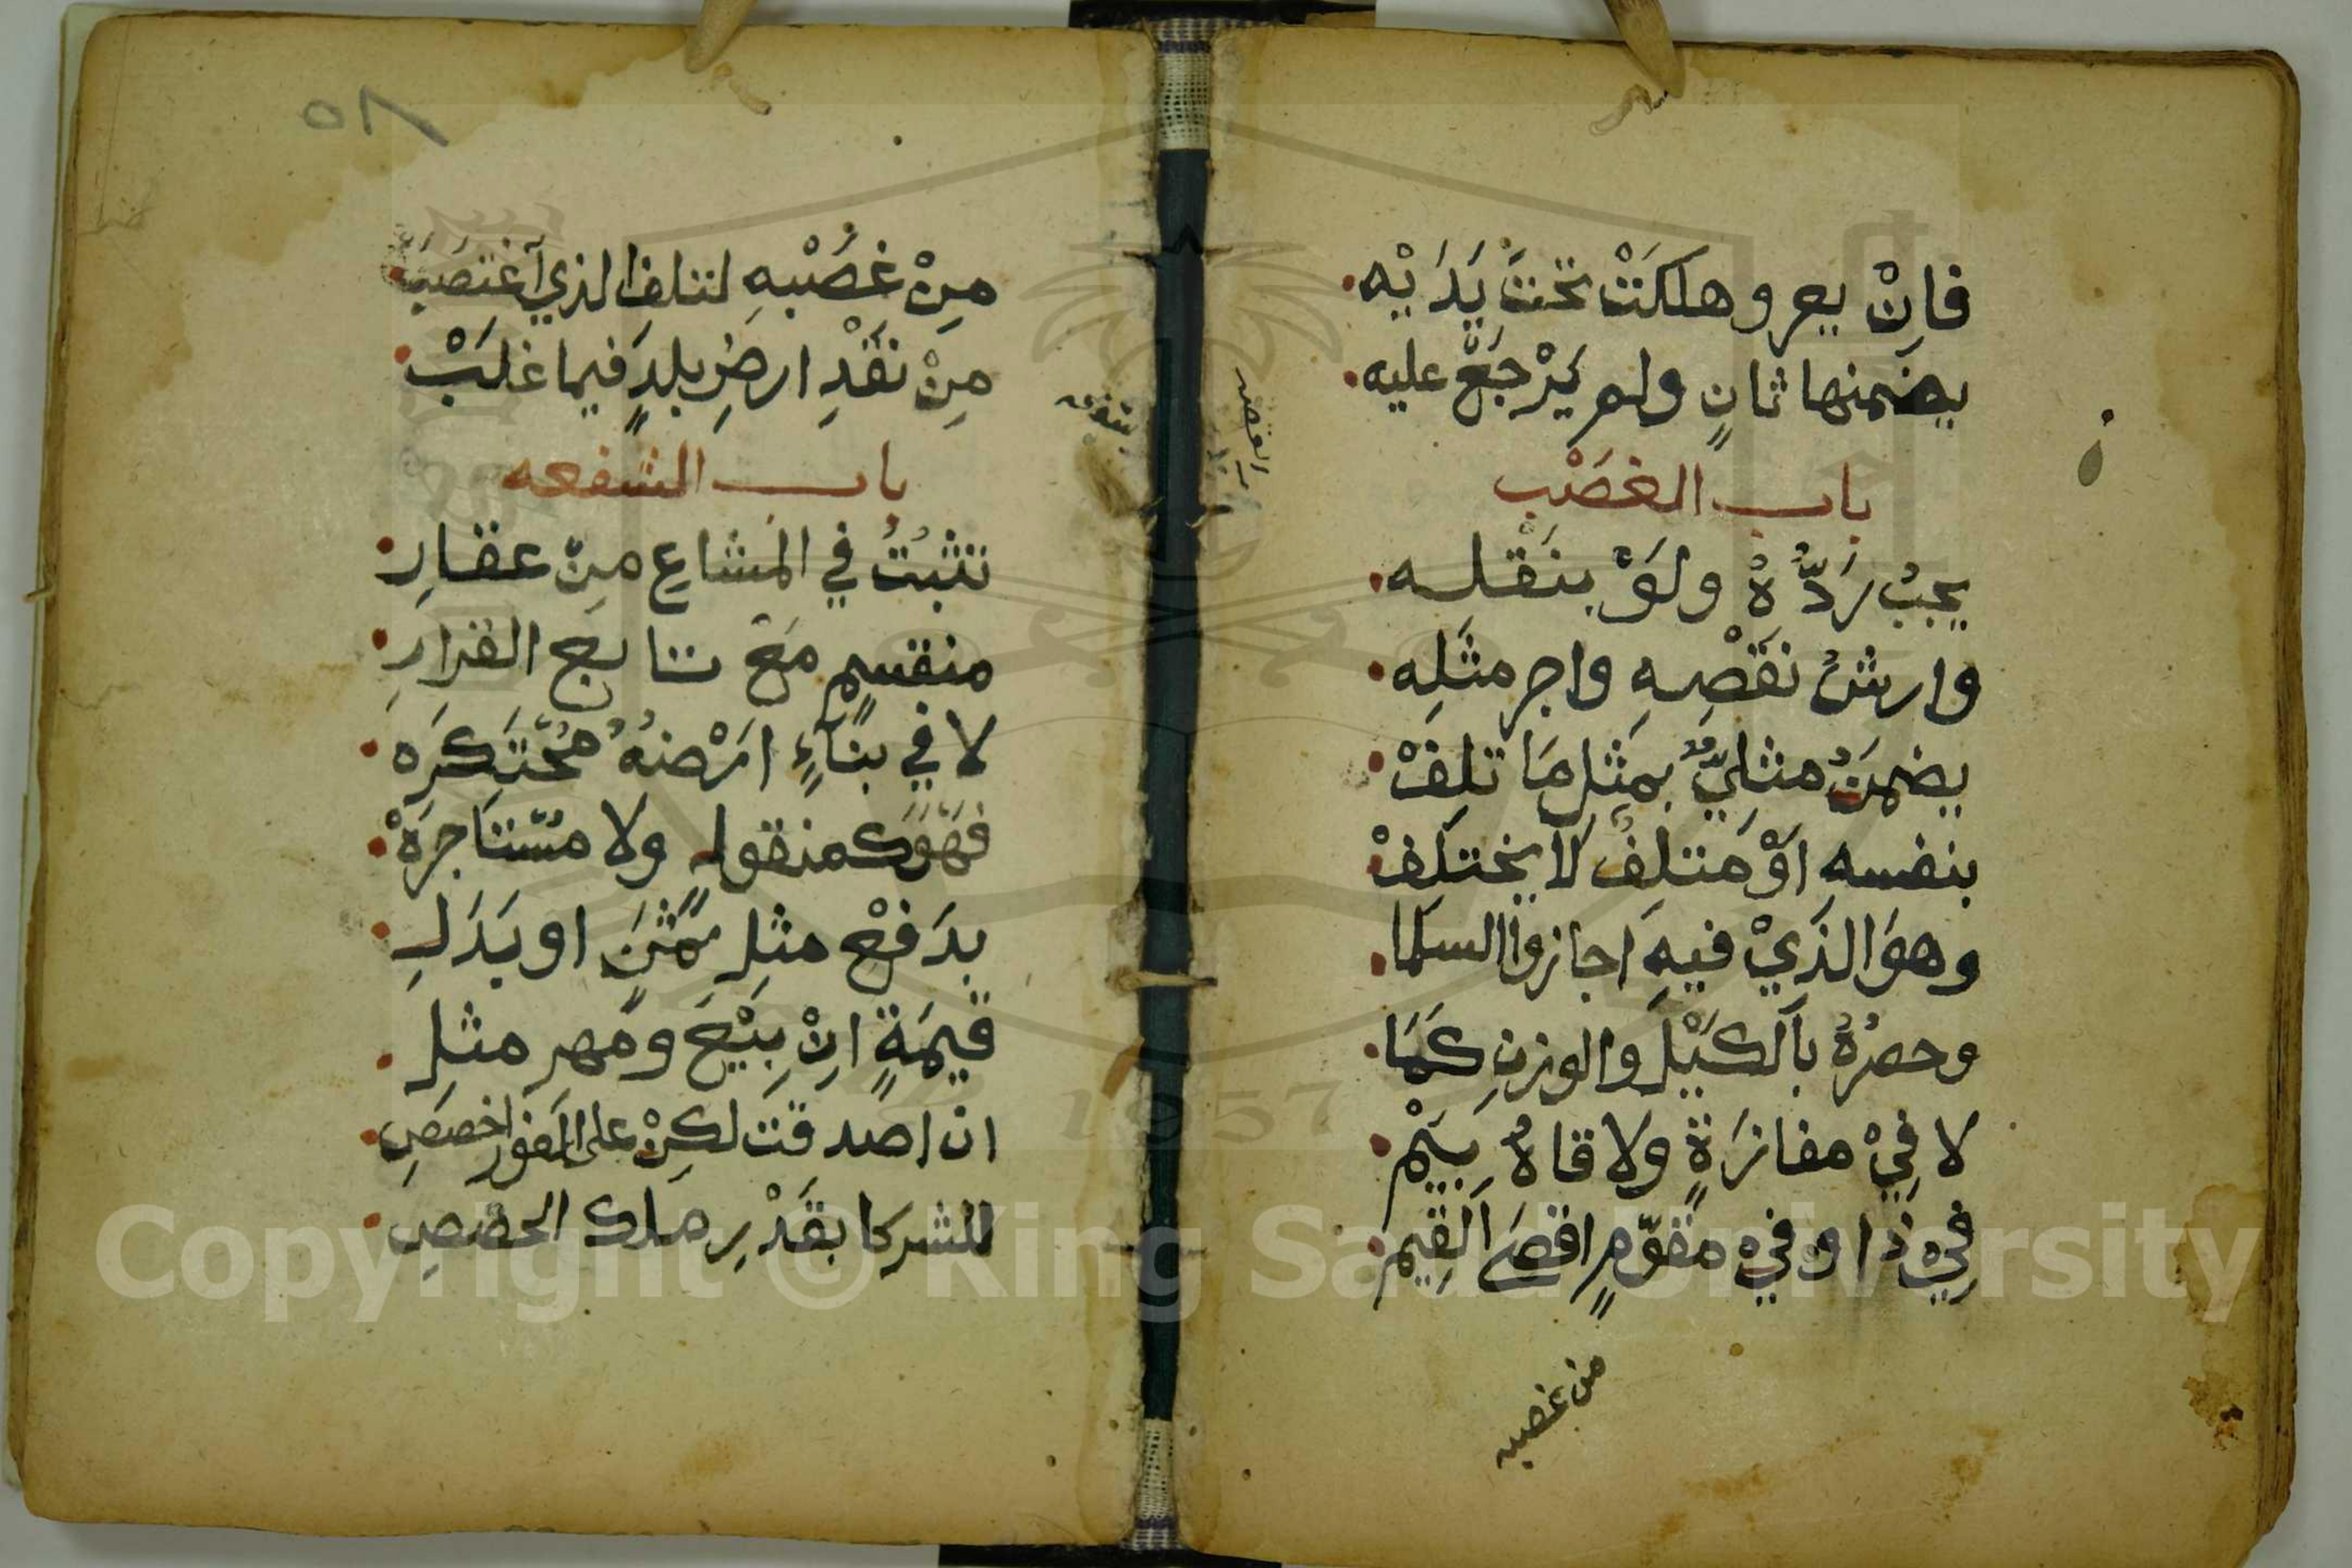 فاِنْ يعر وهلكَتْ تحتَ يَدَيْه
يضمنها ثانٍ ولم يَرْجَعْ عليه
باب الغصْب
يجبُ رَدُّهُ ولَوْ بنَقْله
وارشُ نقَصْهِ واجر مثَلِه
يضمنُ مثليٌّ بمثِل مَا تلِفْ
بنفسه اوْ مَتلِفُ لا يختلِفْ
وهوَ الذَيْ فيهِ اجازوا السلما
وحصرُهُ بالكَيْل والوزنِ كَمَا
لا فِيْ مفازَةٍ ولاقاهُ بِيَمْ
فِيْ ذا وفيْ مقوّمٍ اقصَى القِيم
من غصبه
مِنْ غصْبهِ لتلف الذي اَغتصَبَ
مِنْ نقَدْ ارضِ بلدٍ فيما غلَبْ
باب الشفعه
تثبُتُ في المشاعِ مِنْ عقارِ
منقسمٍ مَعْ تابع القرارِ
لا في بنَآءٍ ارْضهُ محُتَكَرَه
فهْوَ كمنقولٍ ولا مسُتاجَرَهْ
بدَفعْ مثِل ثمَنٍ او بَدَلِ
قيمَةٍ اِنْ بِيْعَ ومَهرِ مثلِ
ان اصدقت لكِنْ على الفور اخصصِ
للشركا بقَدْرِ ملك الحصَصِ
٥٨